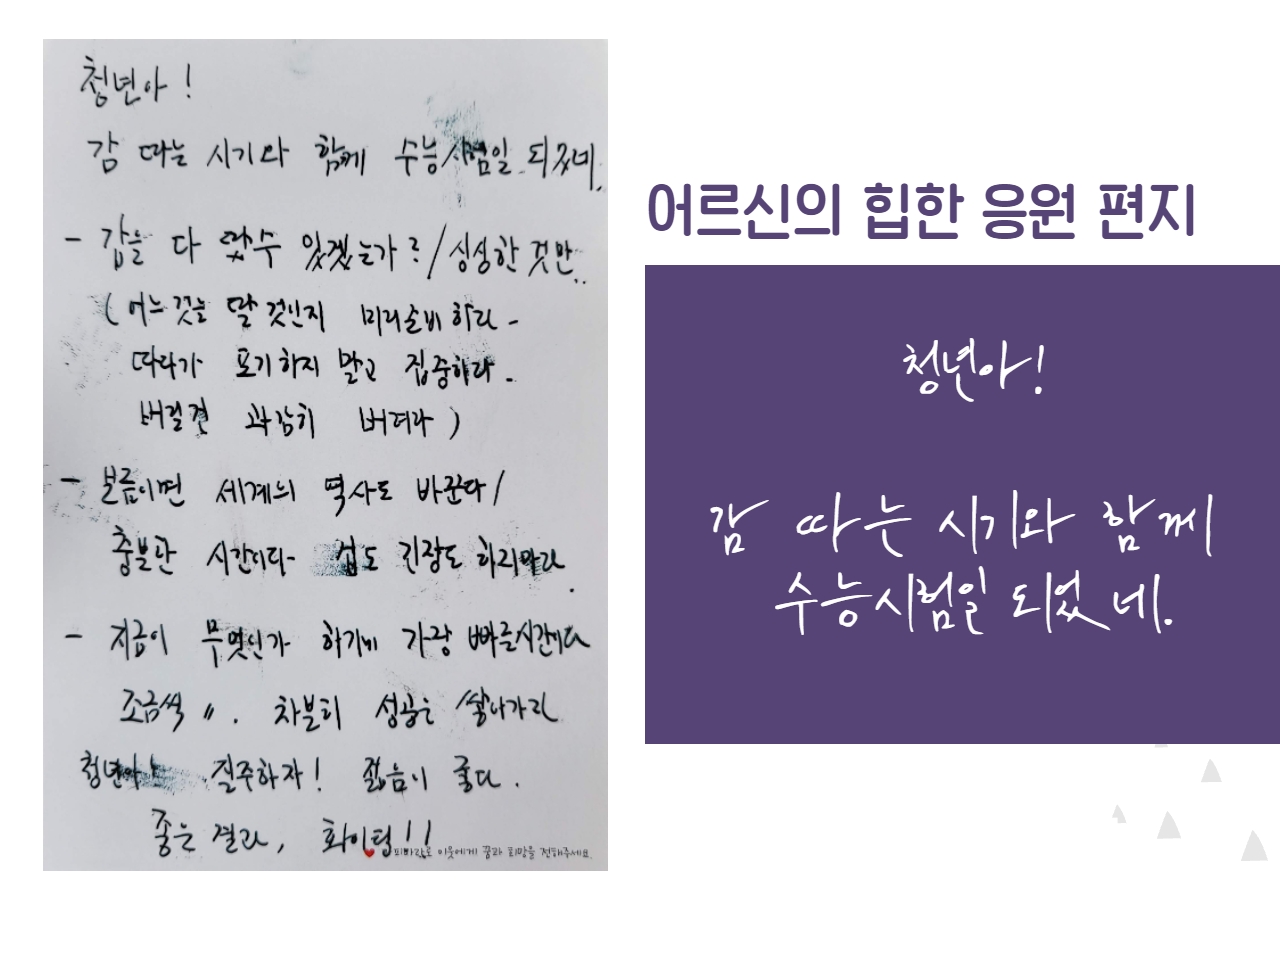 청년아!
감 따는 시기와 함께 수능시험일 되었네.
- 감을 다 딸수 있겠는가? / 싱싱한 것만..
(어느것을 딸 것인지 미리준비하라-
따라가 포기하지 말고 집중하라.
버릴건 과감히 버려라)
- 보름이면 세계의 역사도 바꾼다/
충분한 시간이다- 겁도 긴장도 하지마라.
- 지금이 무엇인가 하기에 가장 빠른시간이다
조금씩 〃. 차분히 성공을 쌓아가라
청년아! 질주하자! 젊음이 좋다.
좋은 결과, 화이팅!!
이웃에게 꿈과 희망을 전해주세요.
어르신의 힙한 응원 편지
청년아!
감 따는 시기와 함께
수능시험일 되었네.